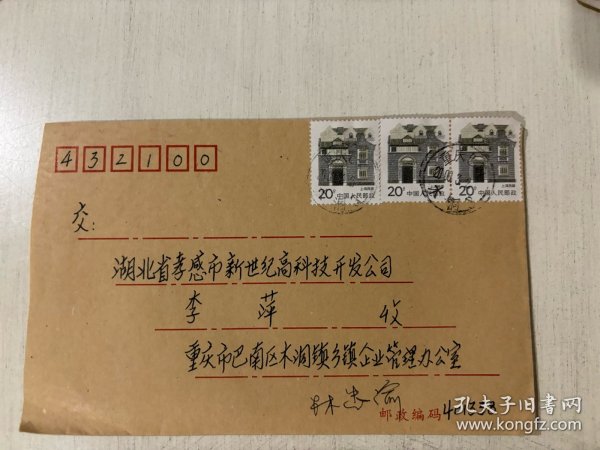 432100
20分 上海民居 中国人民邮政
20分 中国人民邮政
20分 上海民居 中国人民邮政
交:
湖北省孝感市新世纪高科技开发公司
李萍 收
重庆市巴南区木洞镇乡镇企业管理办公室
林忠渝
邮政编码
孔夫子旧书网
www.kongfz.com